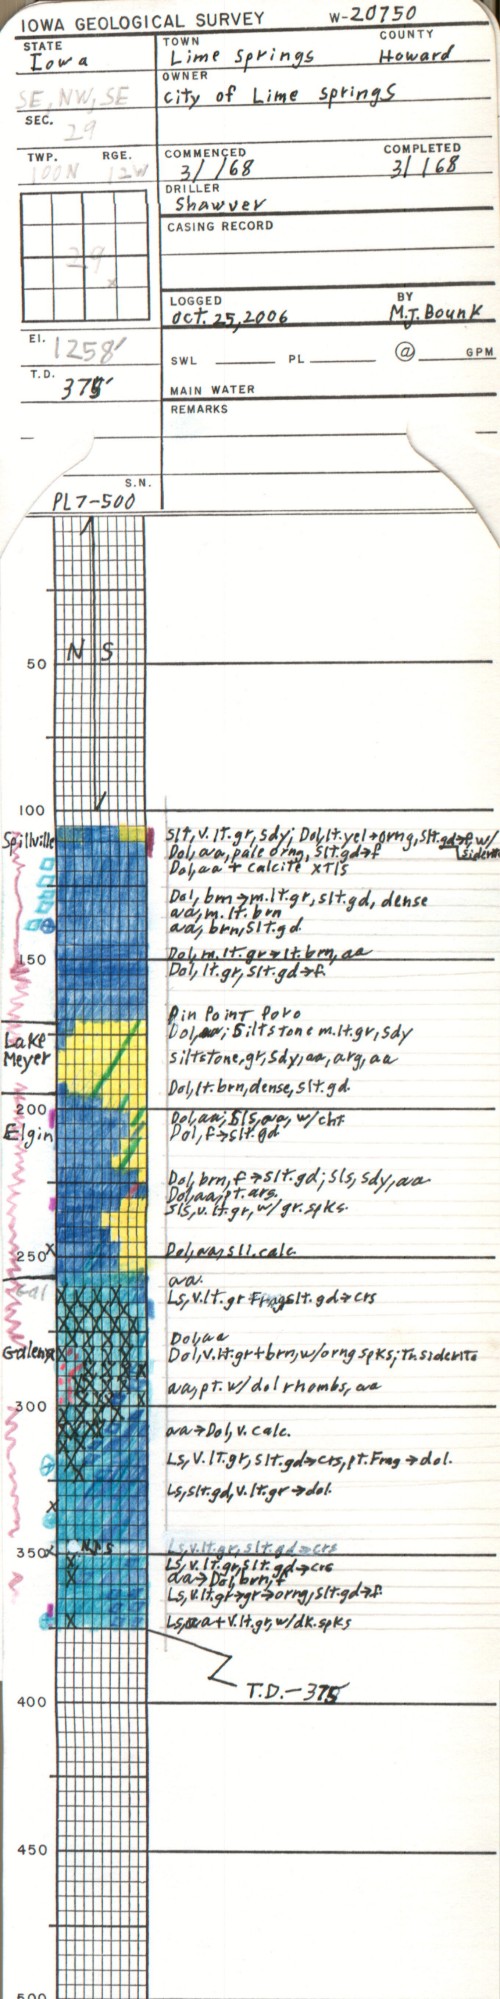 IOWA GEOLOGICAL SURVEY W-20750
STATE TOWN COUNTY
Iowa Lime Springs Howard
OWNER
SE, NW, SE City of Lime Springs
SEC.
29
TWP. RGE. COMMENCED COMPLETED
100N 12W 3/ /68 3/ /68
DRILLER
Shawver
CASING RECORD
29
x
LOGGED BY
Oct. 25, 2006 M.J. Bounk
El. 1258'
SWL PL @ GPM
T.D. 375'
MAIN WATER
REMARKS
S.N.
PL7-500
N S
50
100
Spillville
Slt, v.lt.gr, sdy; Dol, lt.yel→orng, slt.gd→f, w/ siderite
Dol, aa, pale orng, slt.gd→f
Dol, aa + calcite XTLS
Dol, brn→m.lt.gr, slt.gd, dense
aa, m.lt.brn
aa, brn, slt.gd
Dol, m.lt.gr→lt.brn, aa
150
Dol, lt.gr, slt.gd→f.
Pin Point Poro
Lake Meyer
Dol, aa; Siltstone m.lt.gr, sdy
siltstone, gr, sdy, aa, arg, aa
Dol, lt.brn, dense, slt.gd.
200
Dol, aa; Sls, aa, w/cht
Elgin
Dol, f→slt.gd
Dol, brn, f→slt.gd; sls, sdy, aa
Dol, aa; pt. arg.
Sls, v.lt.gr, w/ gr.spks.
250
Dol, aa, sli.calc
aa.
Gal
Ls, v.lt.gr Frag slt.gd→crs
Dol, aa
Galena
Dol, v.lt.gr + brn, w/orng spks; Tr. siderite
aa, pt. w/ dol rhombs, aa
300
aa→Dol, v.calc.
Ls, v.lt.gr, slt.gd→crs, pt. Frag→dol.
Ls, slt.gd, v.lt.gr→dol.
NS
Ls, v.lt.gr, slt.gd→crs
350
Ls, v.lt.gr, slt.gd→crs
aa→Dol, brn, f
Ls, v.lt.gr→gr→orng, slt.gd→f.
Ls, aa + v.lt.gr, w/dk.spks
T.D.-375
400
450
500